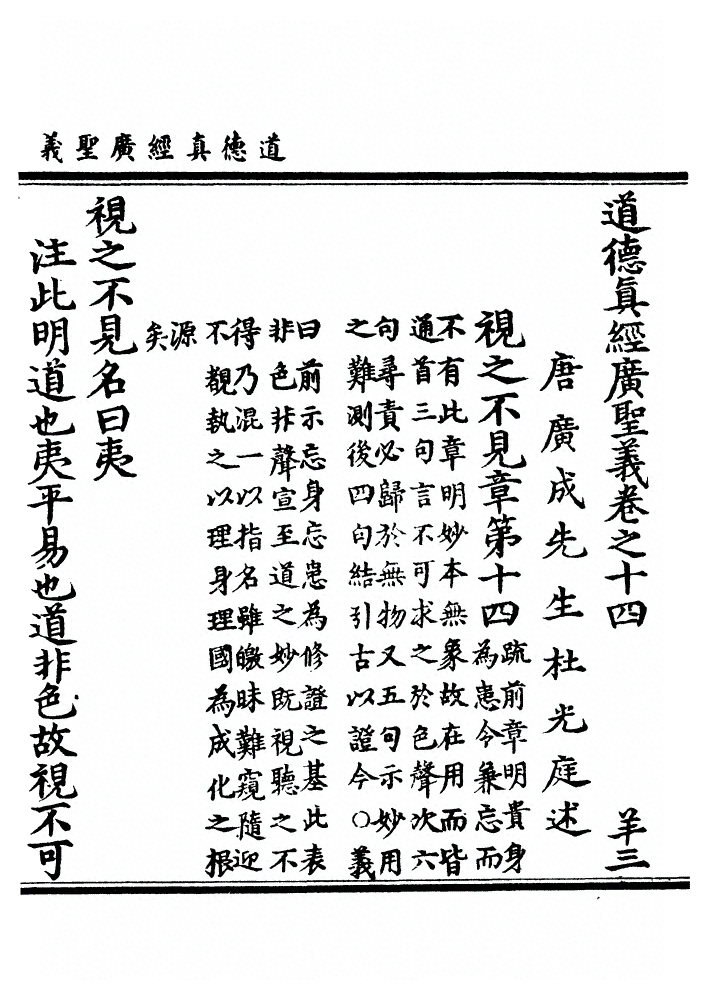 道德真經廣聖義
道德眞經廣聖義卷之十四 羊三
唐廣成先生杜光庭述
視之不見章第十四
疏前章明貴身
為患今兼忘而
不有此章明妙本無象故在用而皆
通首三句言不可求之於色聲次六
句尋責必歸於無物又五句示妙用
之難測後四句結引古以證今○義
曰前示忘身忘患為修證之基此表
非色非聲宣至道之妙既視聽之不
得乃混一以指名雖皦昧難窺隨迎
不覩執之以理身理國為成化之根
源
矣
視之不見名曰夷
注此明道也夷平易也道非色故視不可